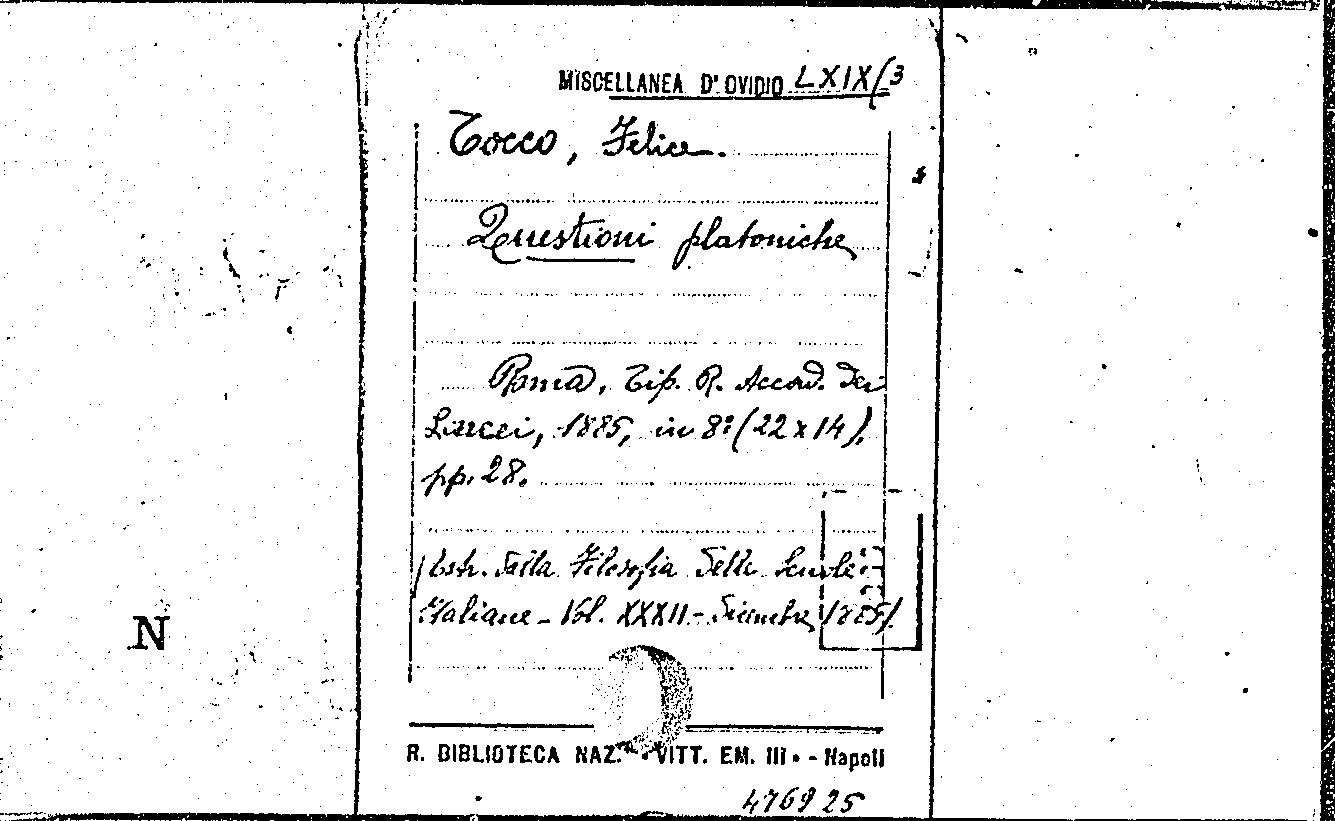 MISCELLANEA D' OVIDIO LXIX/3
Tocco, Felice.
Questioni platoniche
Roma, Tip. R. Accad. dei
Lincei, 1885, in 8° (22 x 14),
pp. 28.
(Estr. dalla Filosofia delle Scuole
Italiane - Vol. XXXII - Dicembre 1885).
N
R. BIBLIOTECA NAZ. VITT. EM. III - Napoli
476925